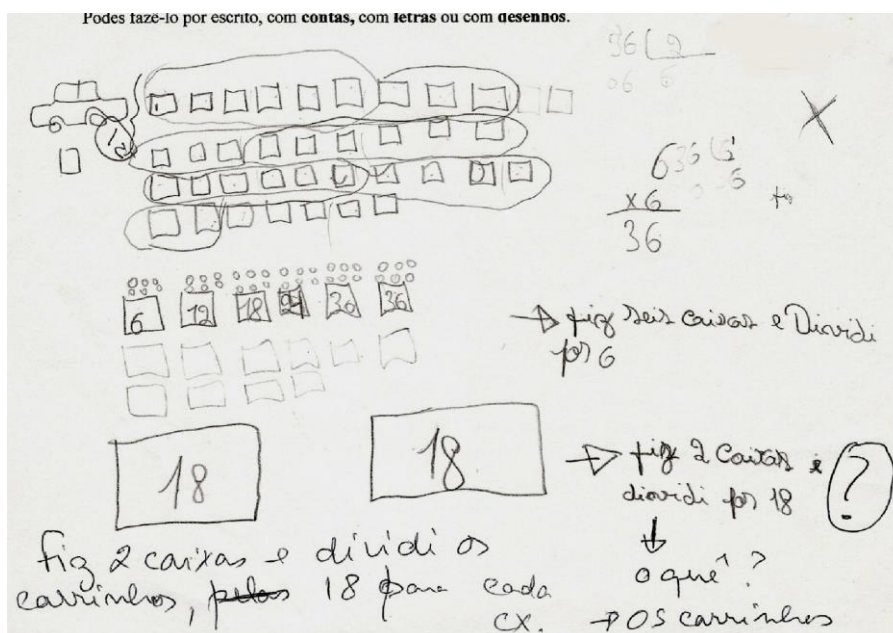 Podes fazê-lo por escrito, com contas, com letras ou com desenhos.
36 2
06 6
6
x6
36
36 6
0 6
6 12 18 24 36 36
→ fiz seis caixas e Dividi
por 6
18 18
→ fiz 2 Caixas e
dividi por 18 ?
↓
o quê?
→ os carrinhos
fiz 2 caixas e dividi os
carrinhos, pelos 18 para cada
cx.